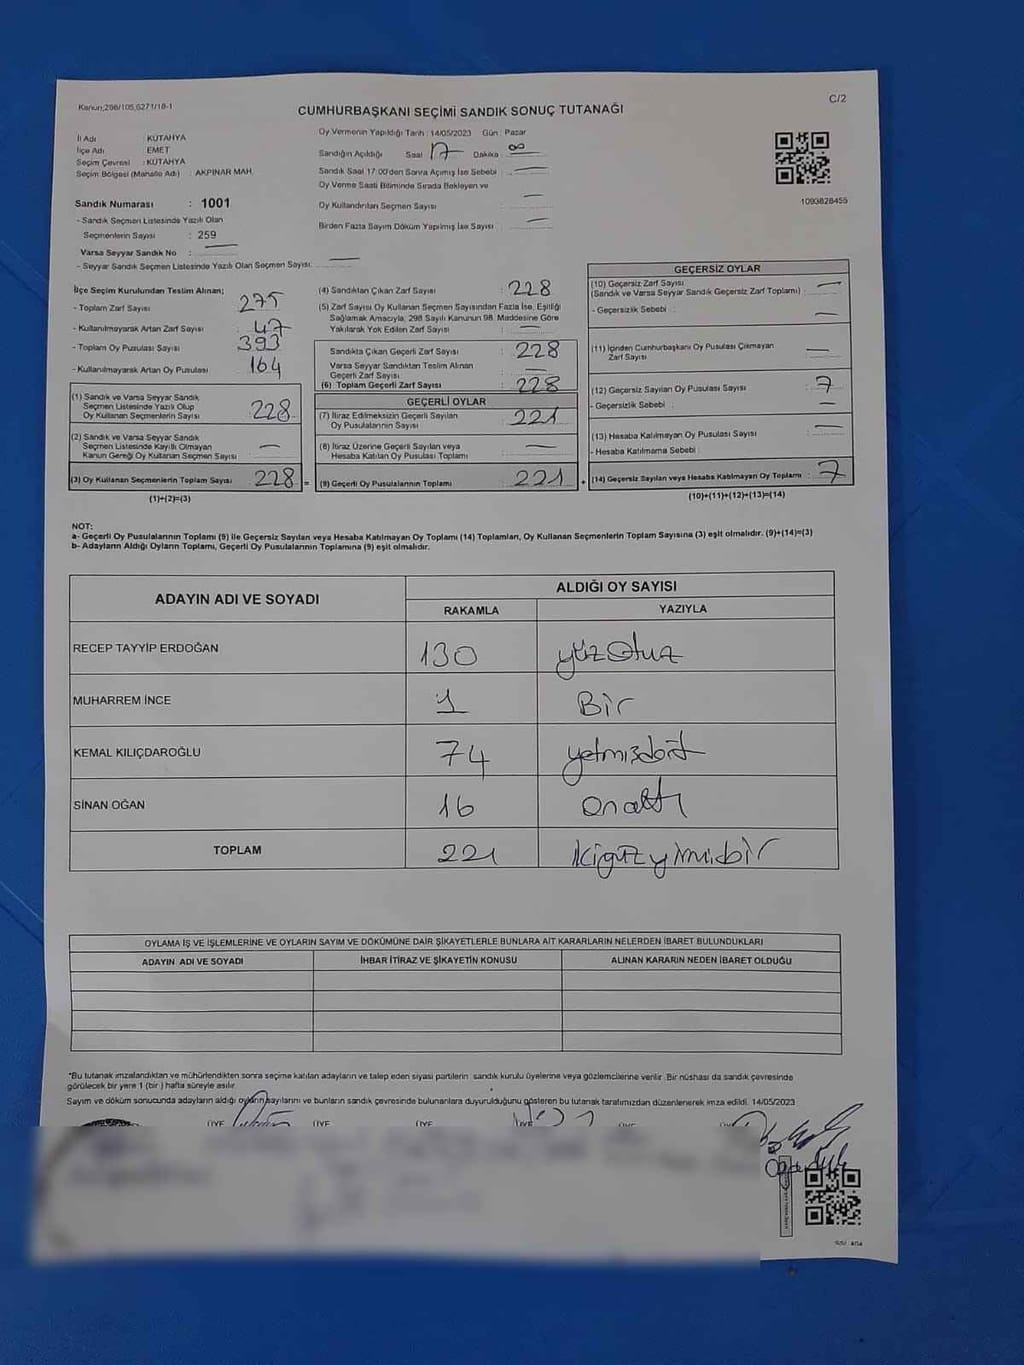 Kanun;298/105,6271/18-1
C/2
CUMHURBAŞKANI SEÇİMİ SANDIK SONUÇ TUTANAĞI
İl Adı : KÜTAHYA
İlçe Adı : EMET
Seçim Çevresi : KÜTAHYA
Seçim Bölgesi (Mahalle Adı) : AKPINAR MAH.
Sandık Numarası : 1001
- Sandık Seçmen Listesinde Yazılı Olan
Seçmenlerin Sayısı : 259
Varsa Seyyar Sandık No : —
- Seyyar Sandık Seçmen Listesinde Yazılı Olan Seçmen Sayısı: —
Oy Vermenin Yapıldığı Tarih : 14/05/2023 Gün : Pazar
Sandığın Açıldığı Saat 17 Dakika 00
Sandık Saat 17:00'den Sonra Açılmış İse Sebebi : —
Oy Verme Saati Bitiminde Sırada Bekleyen ve
Oy Kullandırılan Seçmen Sayısı : —
Birden Fazla Sayım Döküm Yapılmış İse Sayısı : —
1093828455
İlçe Seçim Kurulundan Teslim Alınan;
- Toplam Zarf Sayısı : 275
- Kullanılmayarak Artan Zarf Sayısı : 47
- Toplam Oy Pusulası Sayısı : 393
- Kullanılmayarak Artan Oy Pusulası : 164
(1) Sandık ve Varsa Seyyar Sandık
Seçmen Listesinde Yazılı Olup
Oy Kullanan Seçmenlerin Sayısı : 228
(2) Sandık ve Varsa Seyyar Sandık
Seçmen Listesinde Kayıtlı Olmayan
Kanun Gereği Oy Kullanan Seçmen Sayısı —
(3) Oy Kullanan Seçmenlerin Toplam Sayısı : 228 =
(1)+(2)=(3)
(4) Sandıktan Çıkan Zarf Sayısı : 228
(5) Zarf Sayısı Oy Kullanan Seçmen Sayısından Fazla İse, Eşitliği
Sağlamak Amacıyla, 298 Sayılı Kanunun 98. Maddesine Göre
Yakılarak Yok Edilen Zarf Sayısı : —
Sandıkta Çıkan Geçerli Zarf Sayısı : 228
Varsa Seyyar Sandıktan Teslim Alınan
Geçerli Zarf Sayısı : —
(6) Toplam Geçerli Zarf Sayısı : 228
GEÇERLİ OYLAR
(7) İtiraz Edilmeksizin Geçerli Sayılan
Oy Pusulalarının Sayısı : 221
(8) İtiraz Üzerine Geçerli Sayılan veya
Hesaba Katılan Oy Pusulası Toplamı : —
(9) Geçerli Oy Pusulalarının Toplamı : 221 +
GEÇERSİZ OYLAR
(10) Geçersiz Zarf Sayısı
(Sandık ve Varsa Seyyar Sandık Geçersiz Zarf Toplamı) : —
- Geçersizlik Sebebi : —
(11) İçinden Cumhurbaşkanı Oy Pusulası Çıkmayan
Zarf Sayısı : —
(12) Geçersiz Sayılan Oy Pusulası Sayısı : 7
- Geçersizlik Sebebi : —
(13) Hesaba Katılmayan Oy Pusulası Sayısı : —
- Hesaba Katılmama Sebebi :
(14) Geçersiz Sayılan veya Hesaba Katılmayan Oy Toplamı : 7
(10)+(11)+(12)+(13)=(14)
NOT:
a- Geçerli Oy Pusulalarının Toplamı (9) ile Geçersiz Sayılan veya Hesaba Katılmayan Oy Toplamı (14) Toplamları, Oy Kullanan Seçmenlerin Toplam Sayısına (3) eşit olmalıdır. (9)+(14)=(3)
b- Adayların Aldığı Oyların Toplamı, Geçerli Oy Pusulalarının Toplamına (9) eşit olmalıdır.
ADAYIN ADI VE SOYADI
ALDIĞI OY SAYISI
RAKAMLA YAZIYLA
RECEP TAYYİP ERDOĞAN 130 yüzotuz
MUHARREM İNCE 1 Bir
KEMAL KILIÇDAROĞLU 74 yetmişdört
SİNAN OĞAN 16 onaltı
TOPLAM 221 ikiyüzyirmibir
OYLAMA İŞ VE İŞLEMLERİNE VE OYLARIN SAYIM VE DÖKÜMÜNE DAİR ŞİKAYETLERLE BUNLARA AİT KARARLARIN NELERDEN İBARET BULUNDUKLARI
ADAYIN ADI VE SOYADI İHBAR İTİRAZ VE ŞİKAYETİN KONUSU ALINAN KARARIN NEDEN İBARET OLDUĞU
*Bu tutanak imzalandıktan ve mühürlendikten sonra seçime katılan adayların ve talep eden siyasi partilerin sandık kurulu üyelerine veya gözlemcilerine verilir. Bir nüshası da sandık çevresinde
görülecek bir yere 1 (bir ) hafta süreyle asılır.
Sayım ve döküm sonucunda adayların aldığı oyların sayılarını ve bunların sandık çevresinde bulunanlara duyurulduğunu gösteren bu tutanak tarafımızdan düzenlenerek imza edildi. 14/05/2023
ÜYE ÜYE ÜYE ÜYE